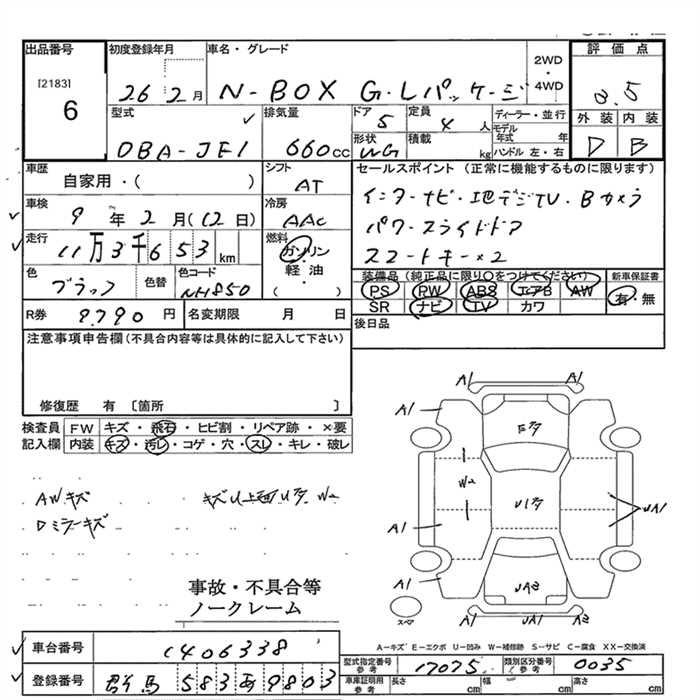 出品番号
[2183]
6
初度登録年月
26 2月
車名・グレード
N-BOX G・Lパッケージ
2WD
・
4WD
評価点
3.5
外装 内装
D B
型式
DBA-JF1
排気量
660cc
ドア
5
定員
4人
形状
WG
積載
kg
ディーラー・並行
モデル年式 年
ハンドル 左・右
車歴
自家用・( )
シフト
AT
車検
9年2月(12日)
冷房
AAC
走行
11万3千653km
燃料
ガソリン
軽・油
( )
色
ブラック
色替
色コード
NH850
R券 9790円
名変期限 月 日
セールスポイント (正常に機能するものに限ります)
インターナビ・地デジTV・Bカメラ
パワースライドドア
スマートキー×2
装備品 (純正品に限り○をつけてください)
新車保証書
PS PW ABS エアB AW
SR ナビ TV カワ
有・無
後日品
注意事項申告欄(不具合内容等は具体的に記入して下さい)
修復歴 有〔箇所 〕
検査員記入欄
FW キズ・飛石・ヒビ割・リペア跡・×要
内装 キズ・汚レ・コゲ・穴・スレ・キレ・破レ
AWキズ
Dミラーキズ
A1 A1
A1
W2
A1
A1
UA1
A1 UA1 A1
スペア
事故・不具合等
ノークレーム
A-キズ E-エクボ U-凹み W-補修跡 S-サビ C-腐食 XX-交換済
車台番号 1406338
登録番号 群馬 583あ9803
型式指定番号 参考 17075
類別区分番号 参考 0035
車庫証明用 参考 長さ cm 幅 cm 高さ cm